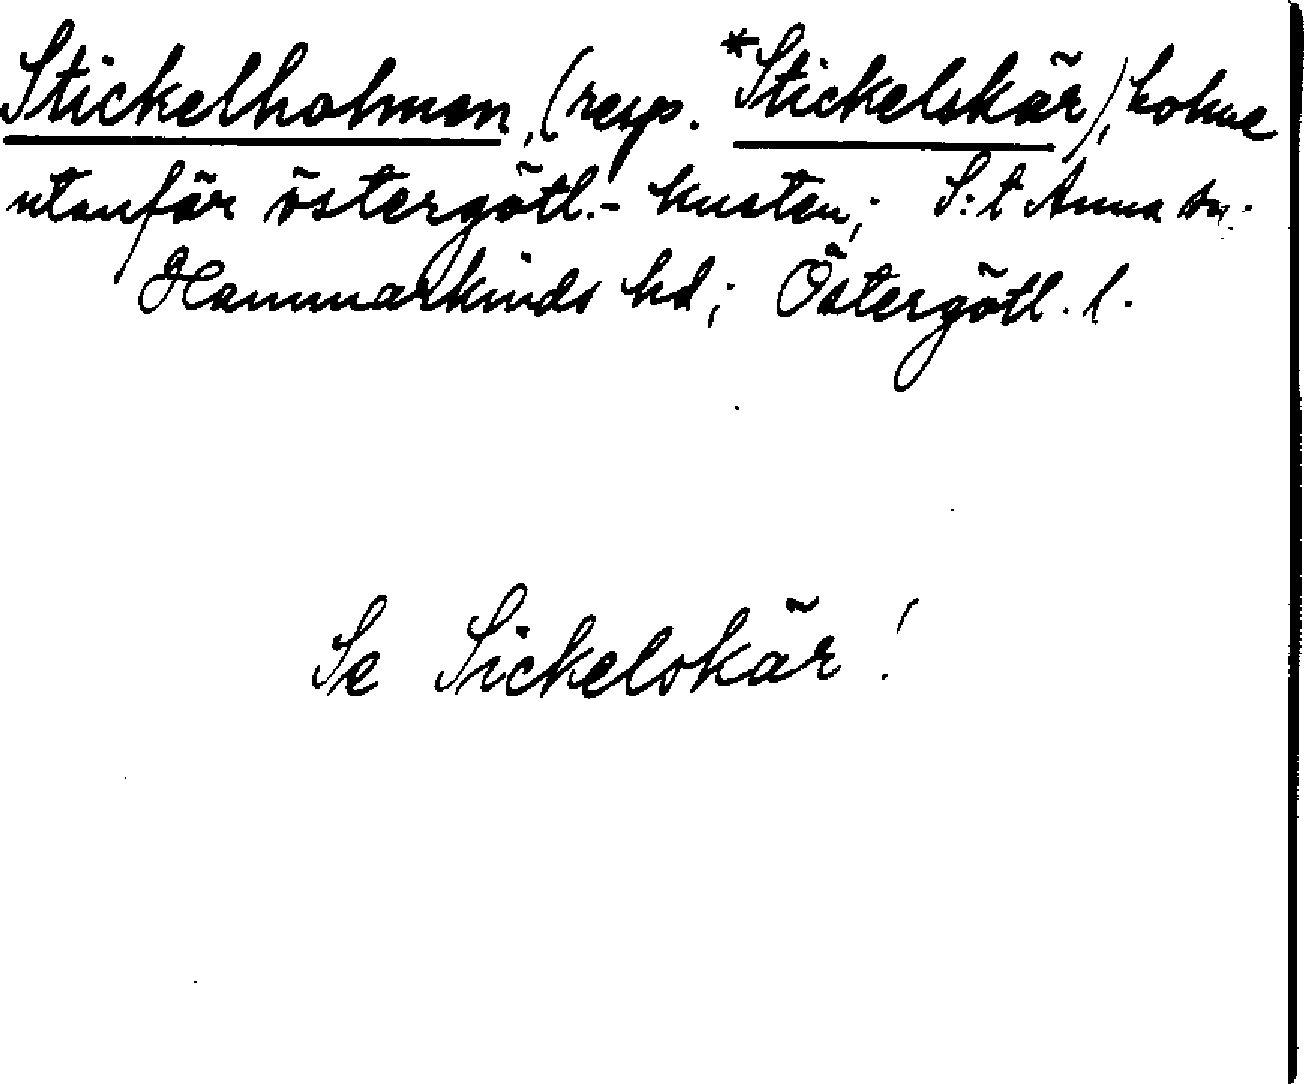 Stickelholmen, (resp. *Stickelskär), holme
utanför östergötl.- kusten; S:t Anna sn.
Hammarkinds hd; Östergötl. l.
Se Sickelskär!